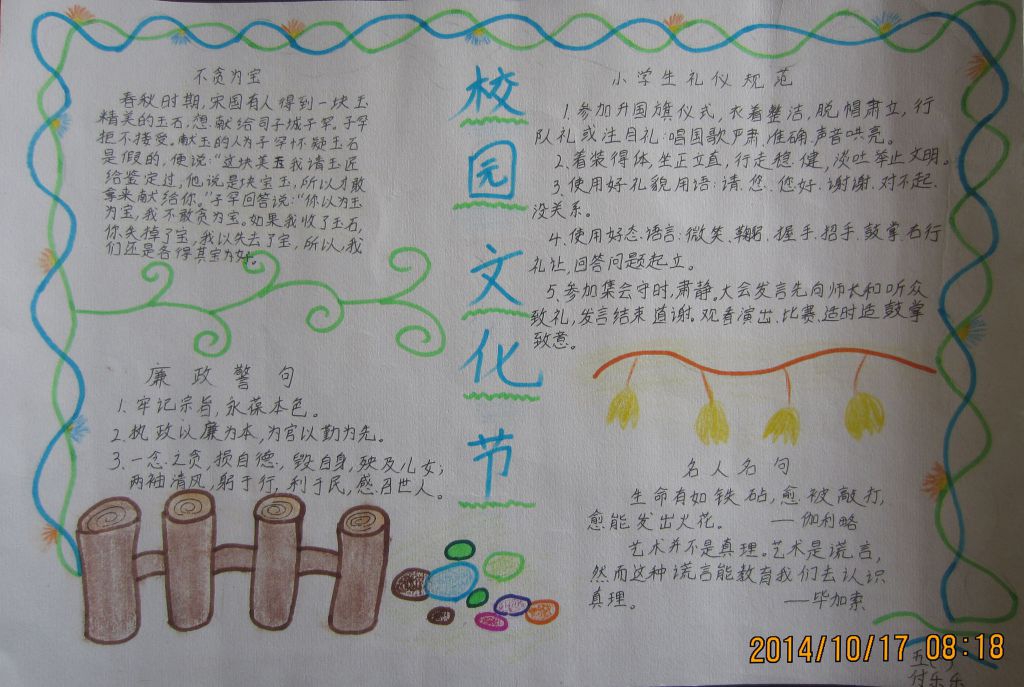 不贪为宝
春秋时期,宋国有人得到一块玉
精美的玉石,想献给司子城子罕。子罕
拒不接受。献玉的人为子罕怀疑玉石
是假的,便说:"这块美玉我请玉匠
给鉴定过,他说是块宝玉,所以才敢
拿来献给你。"子罕回答说:"你以为玉
为宝,我不敢贪为宝。如果我收了玉石,
你失掉了宝,我以失去了宝,所以,我
们还是各得其宝为好。
廉政警句
1.牢记宗旨,永葆本色。
2.执政以廉为本,为官以勤为先。
3.一念之贪,损自德,毁自身,殃及儿女;
两袖清风,躬于行,利于民,感召世人。
校
园
文
化
节
小学生礼仪规范
1.参加升国旗仪式,衣着整洁,脱帽肃立,行
队礼或注目礼:唱国歌严肃.准确.声音哄亮。
2.着装得体,坐正立直,行走稳健,淡吐举止文明。
3.使用好礼貌用语:请.您.您好.谢谢.对不起.
没关系。
4.使用好态.语言:微笑.鞠躬.握手.招手.鼓掌右行
礼让,回答问题起立。
5.参加集会守时,肃静。大会发言先向师长和听众
致礼,发言结束道谢。观看演出.比赛.适时造鼓掌
致意。
名人名句
生命有如铁砧,愈被敲打,
愈能发出火花。 ——伽利略
艺术并不是真理。艺术是谎言,
然而这种谎言能教育我们去认识
真理。 ——毕加索
2014/10/17 08:18
五(
付乐乐